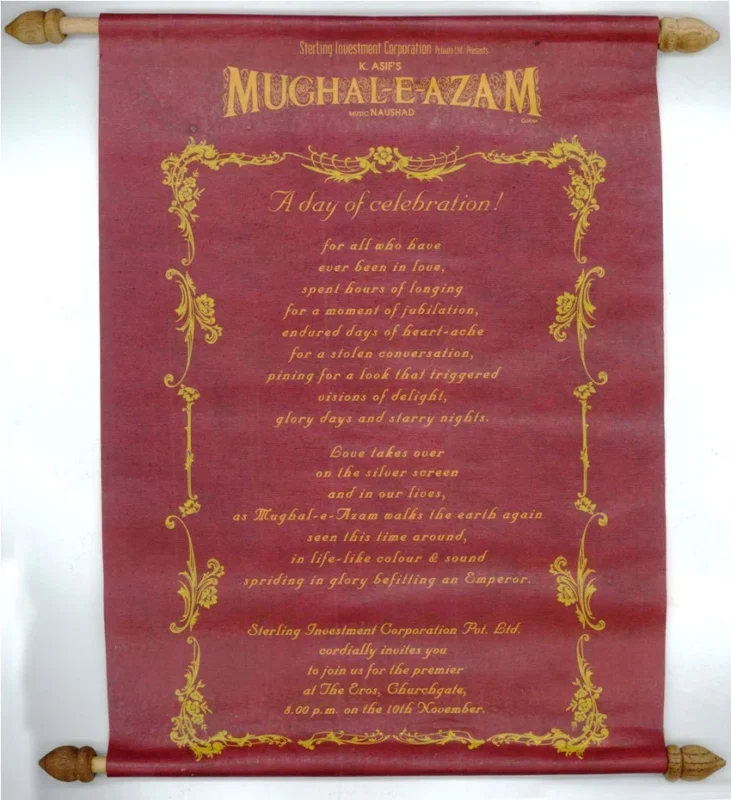 Sterling Investment Corporation Private Ltd. Presents
K. ASIF'S
MUGHAL-E-AZAM
MUSIC NAUSHAD
Colour
A day of celebration!
for all who have
ever been in love,
spent hours of longing
for a moment of jubilation,
endured days of heart-ache
for a stolen conversation,
pining for a look that triggered
visions of delight,
glory days and starry nights.
Love takes over
on the silver screen
and in our lives,
as Mughal-e-Azam walks the earth again
seen this time around,
in life-like colour & sound
spriding in glory befitting an Emperor.
Sterling Investment Corporation Pvt. Ltd.
cordially invites you
to join us for the premier
at The Eros, Churchgate,
8.00 p.m. on the 10th November.